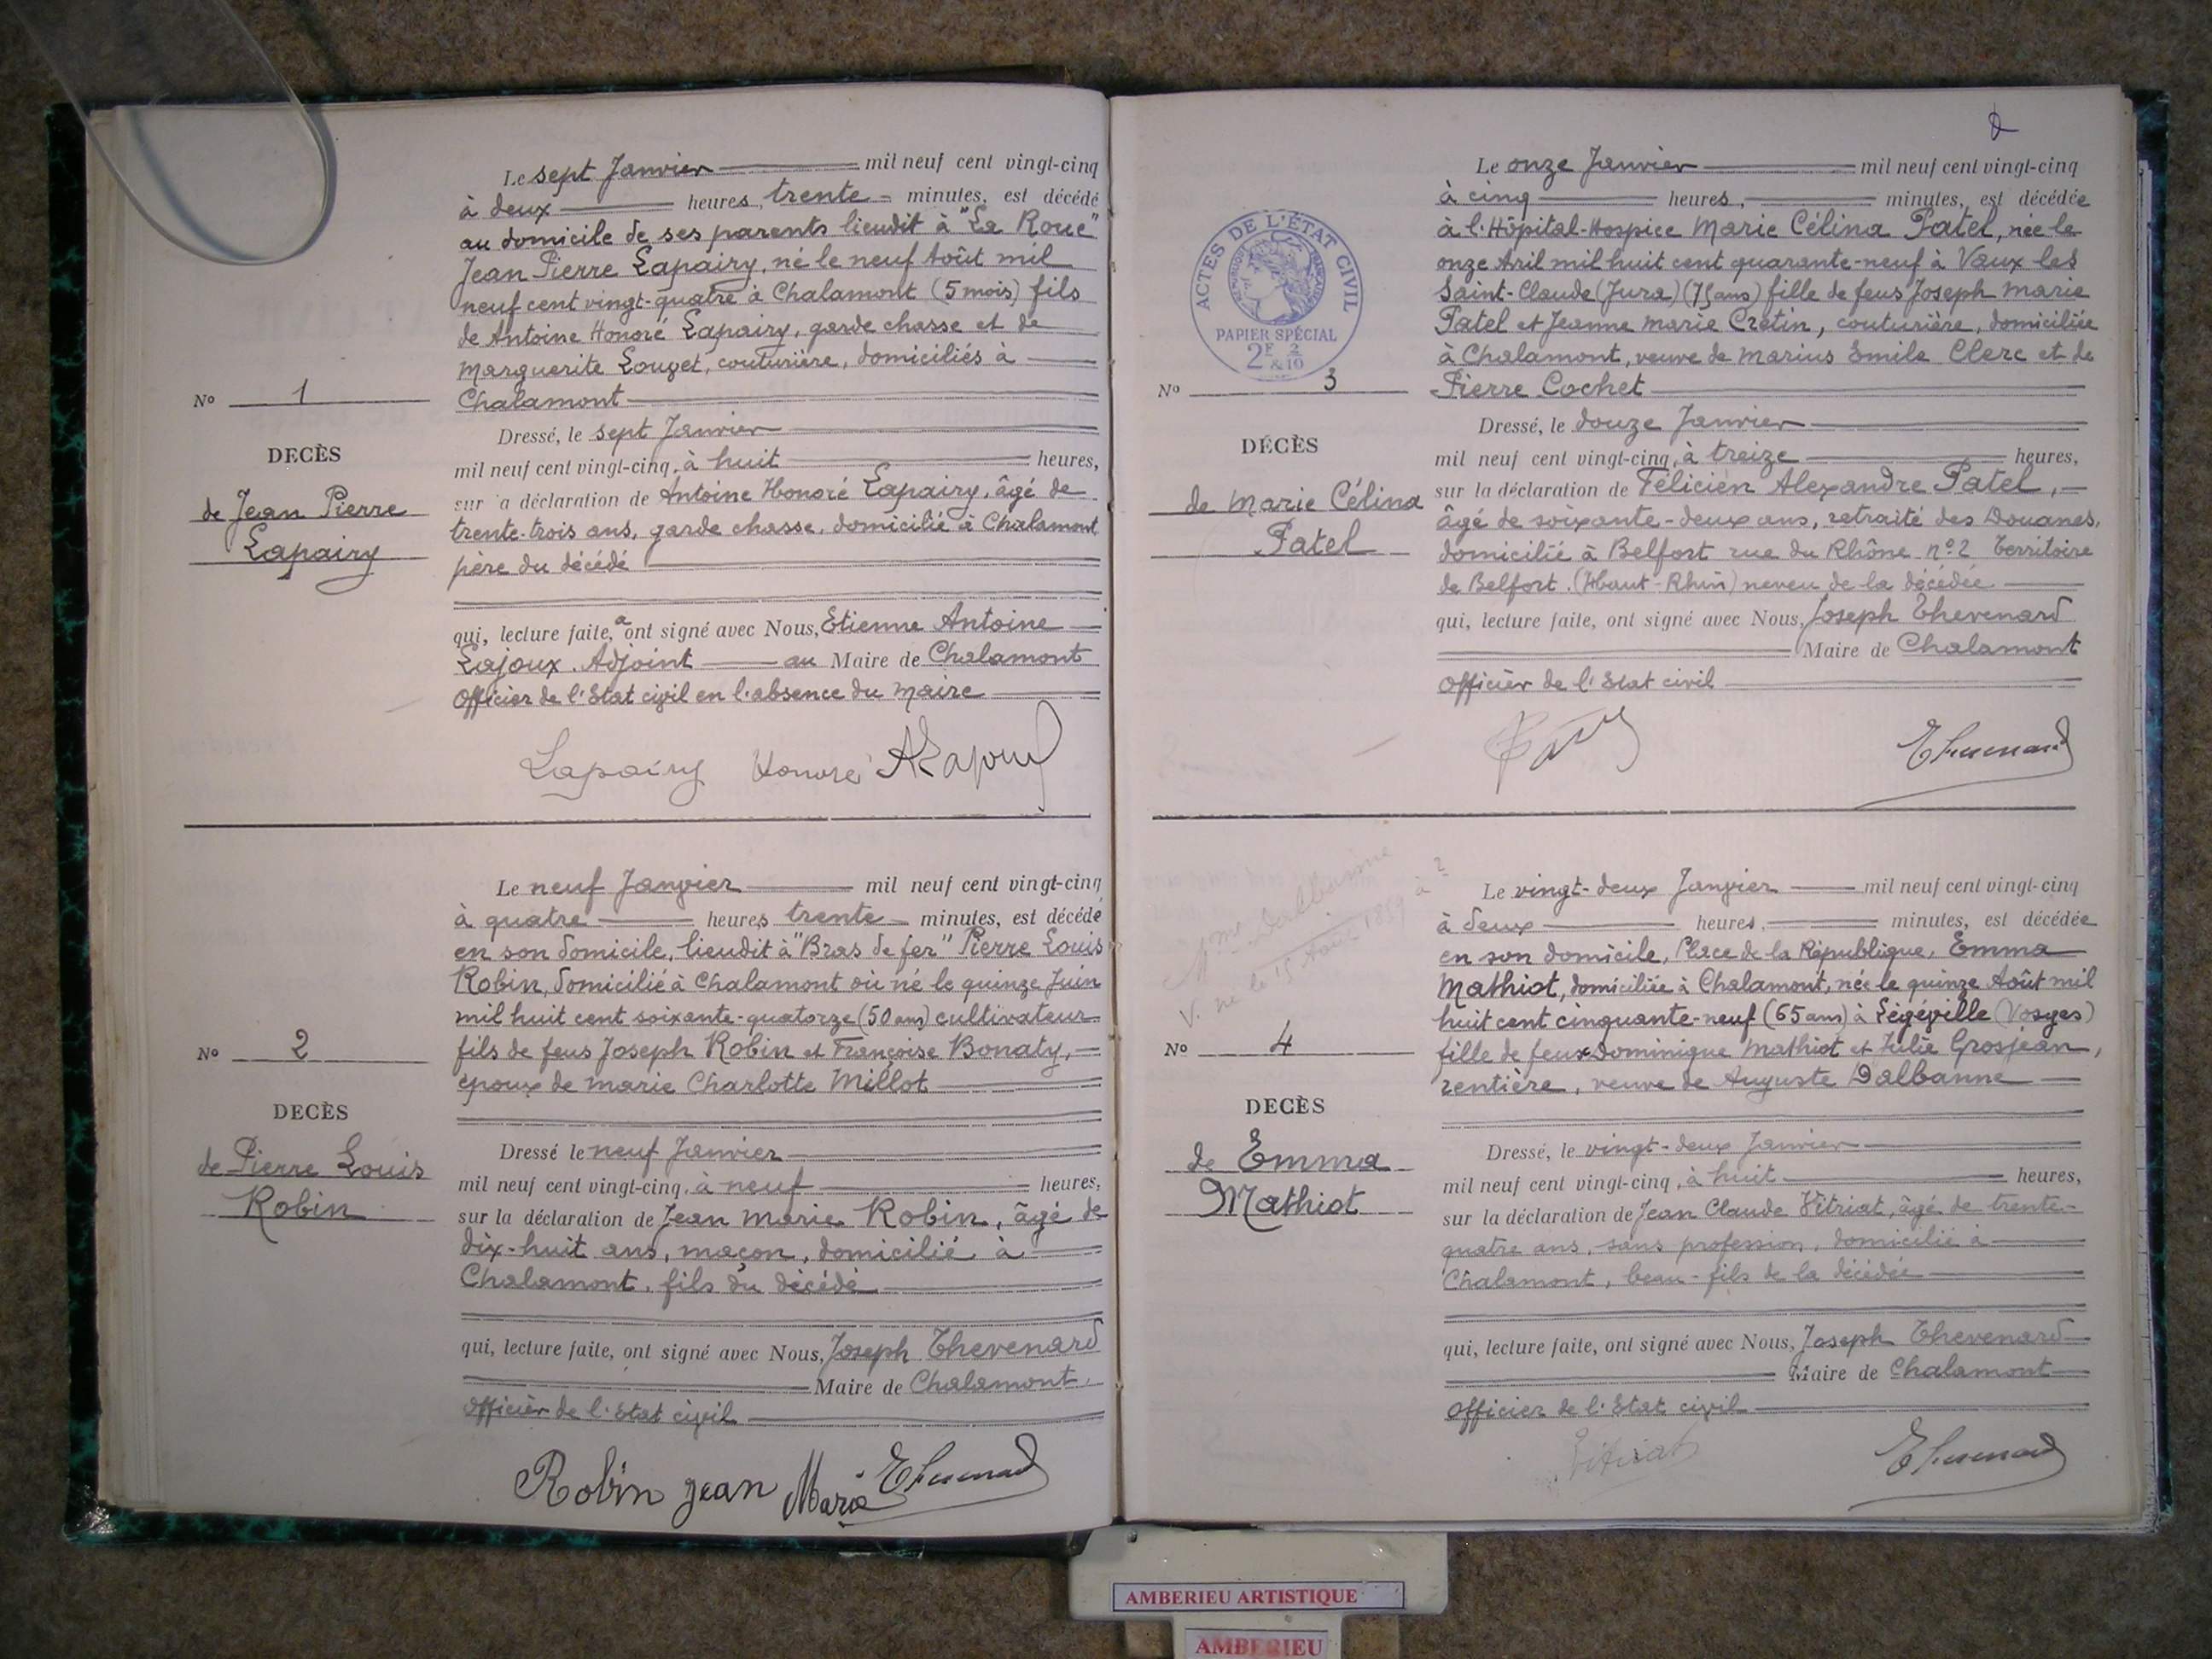 Le sept Janvier mil neuf cent vingt-cinq
à deux heures, trente minutes, est décédé
au domicile de ses parents lieudit à "La Roue"
Jean Pierre Lapairy, né le neuf Août mil
neuf cent vingt-quatre à Chalamont (5 mois) fils
de Antoine Honoré Lapairy, garde chasse et de
Marguerite Louget, couturière, domiciliés à
Chalamont
No 1
DECÈS
de Jean Pierre
Lapairy
Dressé, le sept Janvier
mil neuf cent vingt-cinq, à huit heures,
sur a déclaration de Antoine Honoré Lapairy, âgé de
trente-trois ans, garde chasse, domicilié à Chalamont
père du décédé
qui, lecture faite, a ont signé avec Nous, Etienne Antoine
Lajoux. Adjoint au Maire de Chalamont
Officier de l'Etat civil en l'absence du Maire
Lapairy Honoré ALajoux
Le neuf Janvier mil neuf cent vingt-cinq
à quatre heures, trente minutes, est décédé
en son domicile, lieudit à "Bras de fer" Pierre Louis
Robin, domicilié à Chalamont où né le quinze Juin
mil huit cent soixante-quatorze (50 ans) cultivateur
fils de feus Joseph Robin et Françoise Bonaty,
époux de Marie Charlotte Millot
No 2
DECÈS
de Pierre Louis
Robin
Dressé le neuf Janvier
mil neuf cent vingt-cinq, à neuf heures,
sur la déclaration de Jean Marie Robin, âgé de
dix-huit ans, maçon, domicilié à
Chalamont, fils du décédé
qui, lecture faite, ont signé avec Nous, Joseph Thevenard
Maire de Chalamont,
Officier de l'Etat civil
Robin jean Marie Thevenard
2
ACTES DE L'ÉTAT CIVIL
RÉPUBLIQUE FRANÇAISE
PAPIER SPÉCIAL
2F & 2/10
Le onze Janvier mil neuf cent vingt-cinq
à cinq heures, minutes, est décédée
à l'Hôpital-Hospice Marie Célina Patel, née le
onze Aril mil huit cent quarante-neuf à Vaux les
Saint-Claude (Jura) (75 ans) fille de feus Joseph Marie
Patel et Jeanne Marie Cretin, couturière, domiciliée
à Chalamont, veuve de Marius Emile Clerc et de
Pierre Cochet
No 3
DÉCÈS
de Marie Célina
Patel
Dressé, le douze Janvier
mil neuf cent vingt-cinq, à treize heures,
sur la déclaration de Félicien Alexandre Patel,
âgé de soixante-deux ans, retraité des Douanes,
domicilié à Belfort rue du Rhône no 2 Territoire
de Belfort. (Haut-Rhin) neveu de la décédée
qui, lecture faite, ont signé avec Nous, Joseph Thevenard
Maire de Chalamont
Officier de l'Etat civil
Thevenard
Mme Dalbanne
V. née le 15 Août 1859 à ?
Le vingt-deux Janvier mil neuf cent vingt-cinq
à deux heures, minutes, est décédée
en son domicile, Place de la République, Emma
Mathiot, domiciliée à Chalamont, née le quinze Août mil
huit cent cinquante-neuf (65 ans) à Légéville (Vosges)
fille de feux Dominique Mathiot et Julie Grosjean,
rentière, veuve de Auguste Dalbanne
No 4
DECÈS
de Emma
Mathiot
Dressé, le vingt-deux Janvier
mil neuf cent vingt-cinq, à huit heures,
sur la déclaration de Jean Claude Vitriat, âgé de trente-
quatre ans, sans profession, domicilié à
Chalamont, beau-fils de la décédée
qui, lecture faite, ont signé avec Nous, Joseph Thevenard
Maire de Chalamont
Officier de l'Etat civil
Vitriat Thevenard
AMBERIEU ARTISTIQUE
AMBERIEU